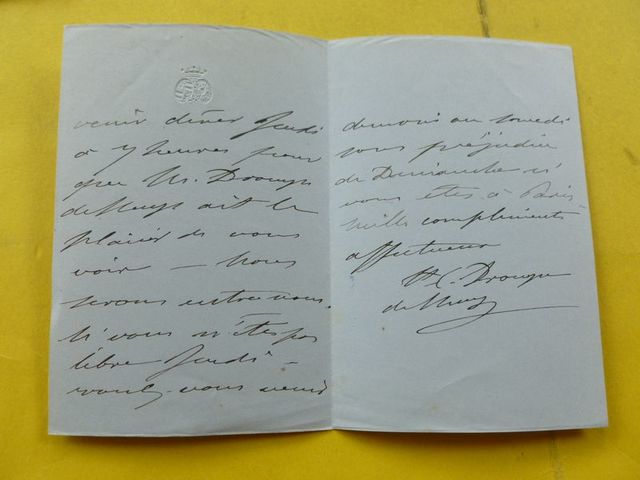 venir dîner Jeudi
à 7 heures pour
que M. Drouyn
de Lhuys ait le
plaisir de vous
voir — Nous
serons entre nous.
Si vous n'êtes pas
libre Jeudi —
voulez-vous venir
demain ou samedi
sans préjudice
de Dimanche si
vous êtes à Paris —
mille compliments
affectueux
Drouyn
de Lhuys